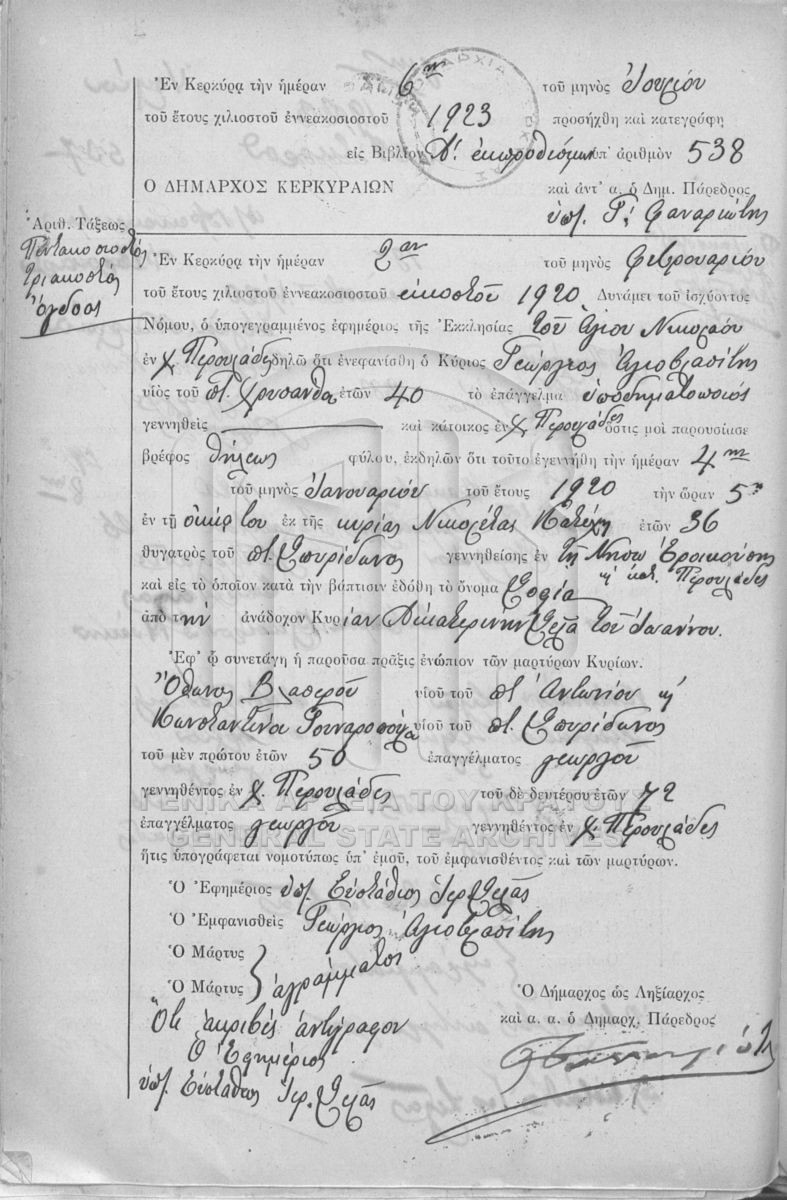 Ἐν Κερκύρᾳ τὴν ἡμέραν 6ην τοῦ μηνὸς Ἰουλίου
τοῦ ἔτους χιλιοστοῦ ἐννεακοσιοστοῦ 1923 προσήχθη καὶ κατεγράφη
εἰς Βιβλίον Δ'. ἐκπροθέσμων ὑπ' ἀριθμὸν 538
Ο ΔΗΜΑΡΧΟΣ ΚΕΡΚΥΡΑΙΩΝ καὶ ἀντ' α. ὁ Δημ. Πάρεδρος
ὑπ. Γ. Φαναριώτης
Ἀριθ. Τάξεως
Πεντακοσιοστός
τριακοστός
ὄγδοος
Ἐν Κερκύρᾳ τὴν ἡμέραν 2αν τοῦ μηνὸς Φεβρουαρίου
τοῦ ἔτους χιλιοστοῦ ἐννεακοσιοστοῦ εἰκοστοῦ 1920 Δυνάμει τοῦ ἰσχύοντος
Νόμου, ὁ ὑπογεγραμμένος ἐφημέριος τῆς Ἐκκλησίας τοῦ Ἁγίου Νικολάου
ἐν χ. Περουλάδες δηλῶ ὅτι ἐνεφανίσθη ὁ Κύριος Γεώργιος Ἁγιοβλασίτης
υἱὸς τοῦ π. Χρυσάνθου ἐτῶν 40 τὸ ἐπάγγελμα ὑποδηματοποιός
γεννηθεὶς καὶ κάτοικος ἐν χ. Περουλάδες ὅστις μοὶ παρουσίασε
βρέφος θήλεως φύλου, ἐκδηλῶν ὅτι τοῦτο ἐγεννήθη τὴν ἡμέραν 4ην
τοῦ μηνὸς Ἰανουαρίου τοῦ ἔτους 1920 τὴν ὥραν 5ην
ἐν τῇ οἰκίᾳ του ἐκ τῆς κυρίας Νικολέτας Κατέχη ἐτῶν 36
θυγατρὸς τοῦ π. Σπυρίδωνος γεννηθείσης ἐν τῇ Νήσῳ Ἐρεικούσης
κ' κατ. Περουλάδες
καὶ εἰς τὸ ὁποῖον κατὰ τὴν βάπτισιν ἐδόθη τὸ ὄνομα Σοφία
ἀπὸ τὴν ἀνάδοχον Κυρίαν Αἰκατερίνην Σελᾶ τοῦ Ἰωάννου.
Ἐφ' ᾧ συνετάγη ἡ παροῦσα πρᾶξις ἐνώπιον τῶν μαρτύρων Κυρίων.
Ὄθωνος Βλασεροῦ υἱοῦ τοῦ π. Ἀντωνίου κ'
Κωνσταντίνου Γουναροπούλου υἱοῦ τοῦ π. Σπυρίδωνος
τοῦ μὲν πρώτου ἐτῶν 50 ἐπαγγέλματος γεωργοῦ
γεννηθέντος ἐν χ. Περουλάδες τοῦ δὲ δευτέρου ἐτῶν 72
ΓΕΝΙΚΑ ΑΡΧΕΙΑ ΤΟΥ ΚΡΑΤΟΥΣ
ἐπαγγέλματος γεωργοῦ γεννηθέντος ἐν χ. Περουλάδες
GENERAL STATE ARCHIVES
ἥτις ὑπογράφεται νομοτύπως ὑπ' ἐμοῦ, τοῦ ἐμφανισθέντος καὶ τῶν μαρτύρων.
Ὁ Ἐφημέριος ὑπ. Εὐστάθιος Ἱερ. Σελᾶς
Ὁ Ἐμφανισθεὶς Γεώργιος Ἁγιοβλασίτης
Ὁ Μάρτυς
Ὁ Μάρτυς ἀγράμματοι
Ὁ Δήμαρχος ὡς Ληξίαρχος
καὶ α. α. ὁ Δημαρχ. Πάρεδρος
Ὅτι ἀκριβὲς ἀντίγραφον
Ὁ Ἐφημέριος
ὑπ. Εὐστάθιος Ἱερ. Σελᾶς